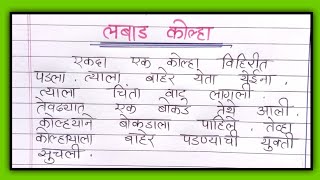 लबाड कोल्हा
एकदा एक कोल्हा विहिरीत
पडला. त्याला बाहेर येता येईना.
त्याला चिंता वाटू लागली.
तेवढ्यात एक बोकड तेथे आली.
कोल्ह्याने बोकडाला पाहिले. तेव्हा
कोल्ह्याला बाहेर पडण्याची युक्ती
सुचली.